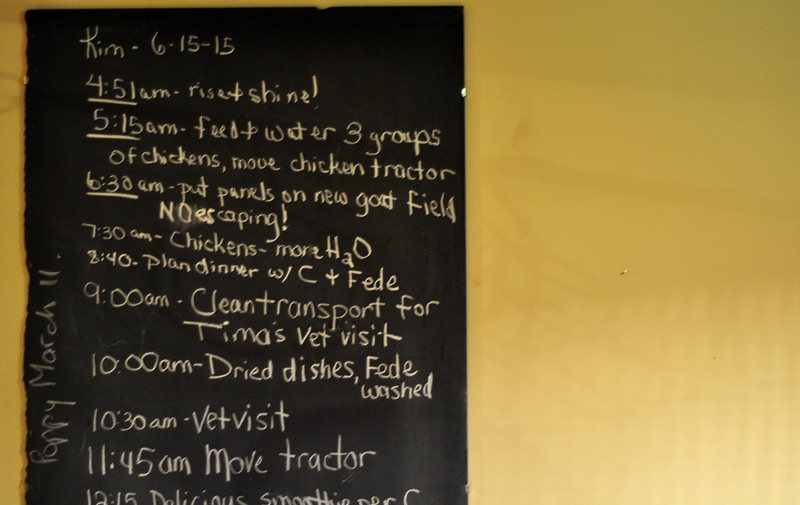 Kim - 6-15-15
4:51am - rise + shine!
5:15am - feed + water 3 groups
of chickens, move chicken tractor
6:30am - put panels on new goat field
NO escaping!
7:30am - Chickens - more H2O
8:40 - plan dinner w/ C + Fede
9:00am - Clean transport for
Tima's Vet visit
10:00am - Dried dishes, Fede
washed
10:30am - Vet visit
11:45am Move tractor
12:15 Delicious smoothie per C
Poppy March 11.